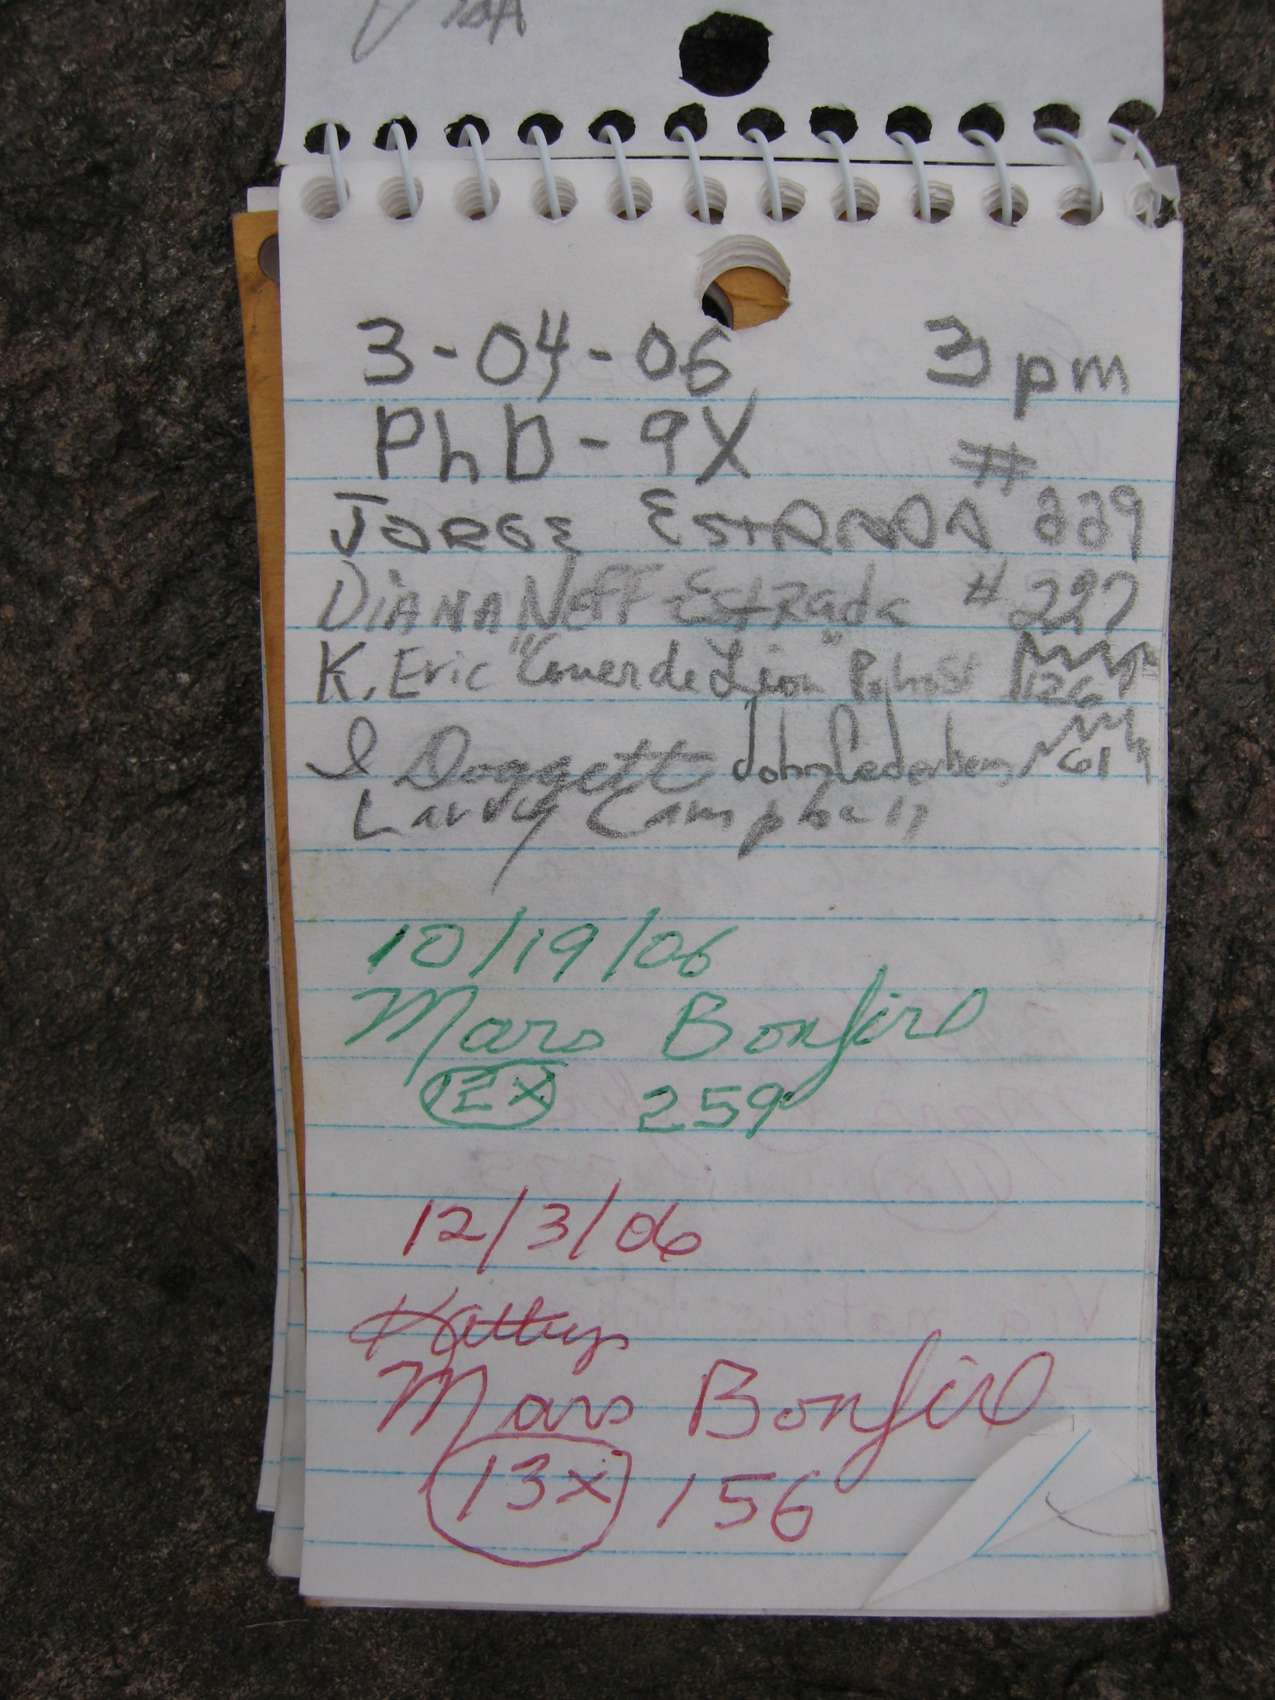 3-04-06 3pm
PhD-9X #
JORGE ESTRADA 229
DiANA NEFF-EstRada # 297
K. Eric "Couer de Lion" 126
I Doggett John 61
Larry Campbell
10/19/06
Mars Bonfire
12x 259
12/3/06
Kathy
Mars Bonfire
13x 156